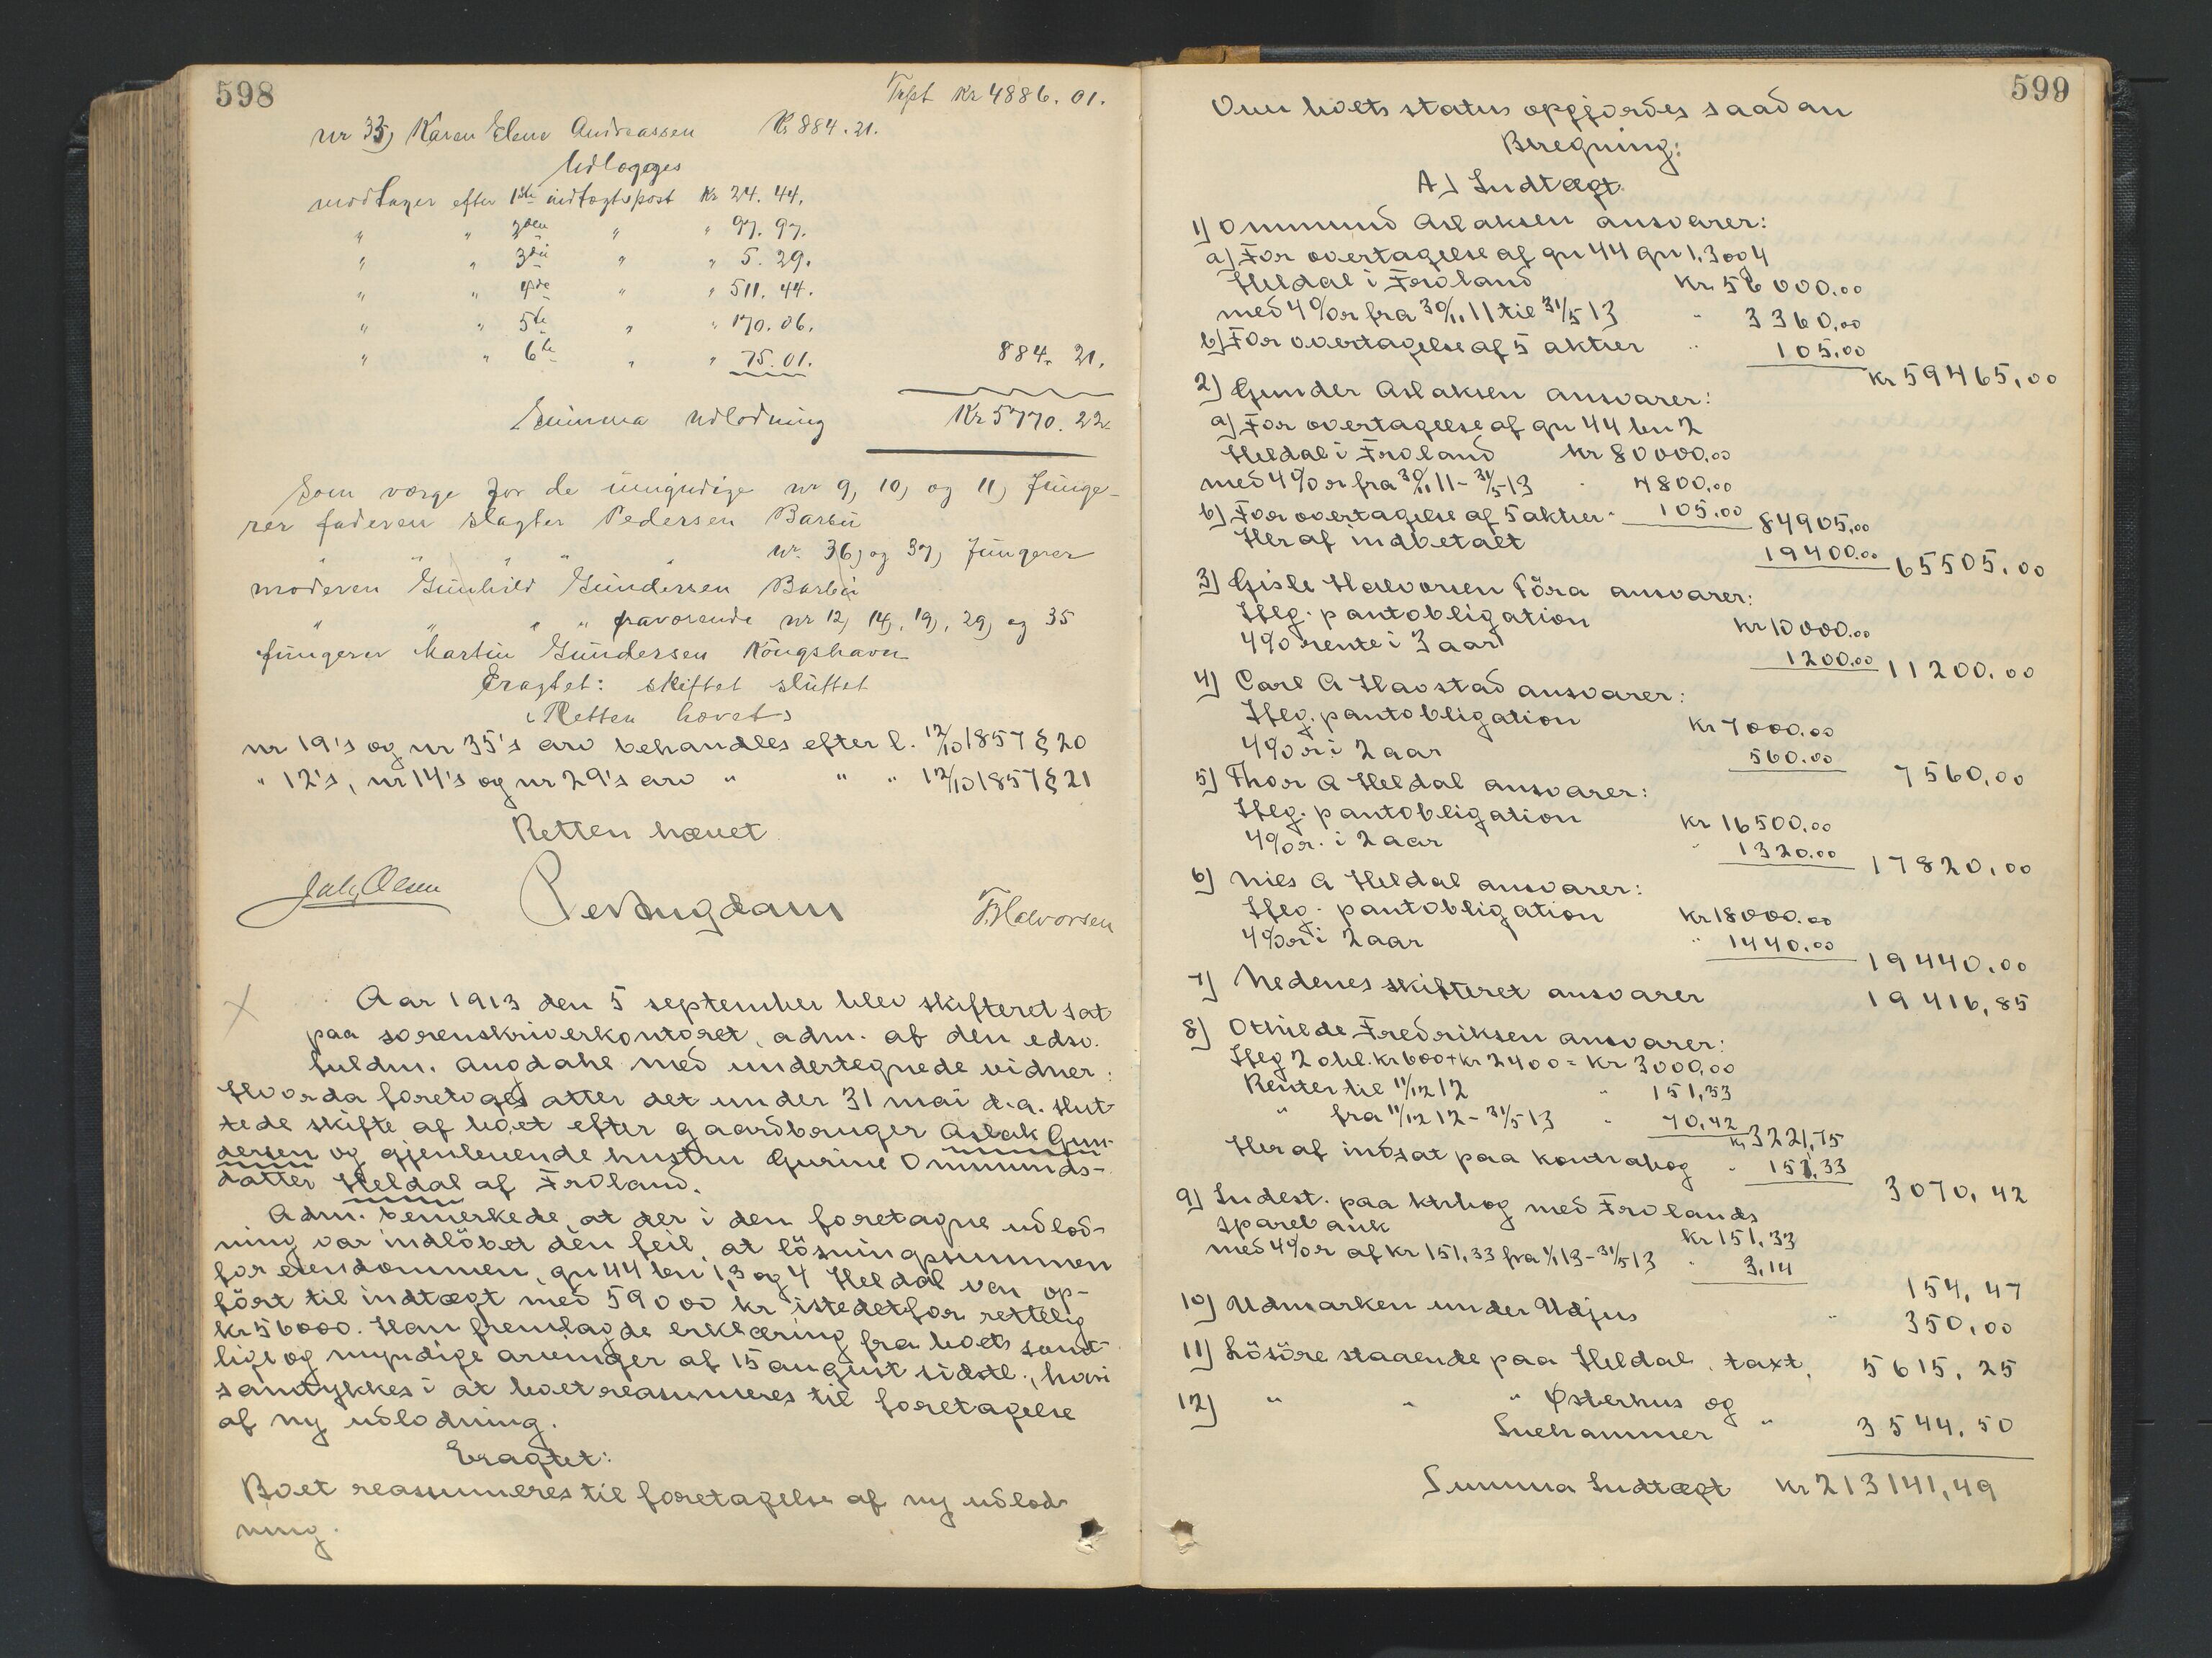 598
Trspt Kr 4886. 01.
nr 35) Karen Elene Andreassen Kr 884. 21.
Udlægges
modtager efter 1ste indtægtspost Kr 24. 44.
" " 2den " " 97. 97.
" " 3die " " 5. 29.
" " 4de " " 511. 44.
" " 5te " " 170. 06.
" " 6te " " 75. 01. 884. 21.
Summa udlodning Kr 5770. 22
Som værge for de umyndige nr 9, 10, og 11, funge-
rer faderen slagter Pedersen Barbu
" " " " nr. 36, og 37, fungerer
moderen Gunhild Gundersen Barbu
" " " " fraværende nr 12, 14, 19, 29, og 35
fungerer Martin Gundersen Kongshavn
Eragtet: skiftet sluttet
(Retten hævet)
nr 19's og nr 35's arv behandles efter l. 12/10 1857 § 20
" 12's, nr 14's og nr 29's arv " " " 12/10 1857 § 21
Retten hævet
Juls Olsen
Per Augdahl
T. Halvorsen
X Aar 1913 den 5 september blev skifteret sat
paa sorenskriverkontoret, adm. af den edsv.
fuldm. Augdahl med undertegnede vidner:
Hvorda foretoges atter det under 31 mai d.a. slut-
tede skifte af boet efter gaardbruger Aslak Gun-
dersen og gjenlevende hustru Gurine Ommunds-
datter Heldal af Froland.
Adm. bemerkede, at der i den foretagne udlod-
ning var indlöbet den feil, at lösningssummen
for eiendommen, gn 44 bn 1,3 og 4 Heldal var op-
fört til indtægt med 59000 kr istedetfor rettelig
kr 56000. Han fremlagde erklæring fra boets samt-
lige og myndige arvinger af 15 august sidstl., hvori
samtykkes i at boet reassumeres til foretagelse
af ny udlodning.
Eragtet:
Boet reassumeres til foretagelse af ny udlod-
ning.
599
Ovnr boets status opgjordes saadan
Beregning:
A) Indtægt.
1) Ommund Aslaksen ansvarer:
a) For overtagelse af gn 44 gn 1, 3 og 4
Heldal i Froland kr 56000.00
med 4% r fra 30/11 11 til 31/5 13 " 3360.00
b) For overtagelse af 5 aktier " 105.00
kr 59465,00
2) Gunder Aslaksen ansvarer:
a) For overtagelse af gn 44 bn 2
Heldal i Froland kr 80000.00
med 4% r fra 30/11 11 - 31/5 13 " 4800.00
b) For overtagelse af 5 aktier " 105.00 84905,00
Heraf indbetalt 19400.00 65505.00
3) Gisle Halvorsen Töra ansvarer:
Iflg. pantobligation kr 10000.00
4% rente i 3 aar 1200.00 11200.00
4) Carl A Havstad ansvarer:
Iflg. pantobligation kr 7000.00
4% r i 2 aar 560.00 7560,00
5) Thor A Heldal ansvarer:
Iflg. pantobligation kr 16500.00
4% r. i 2 aar " 1320.00 17820.00
6) Nils A Heldal ansvarer:
Iflg. pantobligation kr 18000.00
4% r i 2 aar " 1440.00 19440.00
7) Nedenes skifteret ansvarer 19416,85
8) Othilde Fredriksen ansvarer:
Iflg 2 obl. kr 600 + kr 2400 = kr 3000,00
Renter til 11/12 12 " 151,33
" fra 11/12 12 - 31/5 13 " 70,42 kr 3221,75
Heraf indsat paa kontrabog " 151,33 3070,42
9) Indest. paa ktrbog med Frolands
sparebank kr 151,33
med 4% r af kr 151,33 fra 1/1 13 - 31/5 13 " 3,14
154,47
10) Udmarken under Udjus " 350,00
11) Lösöre staaende paa Heldal, taxt. 5615,25
12) " " " Østerhus og
Suehammer " 3544,50
Summa Indtægt kr 213141,49